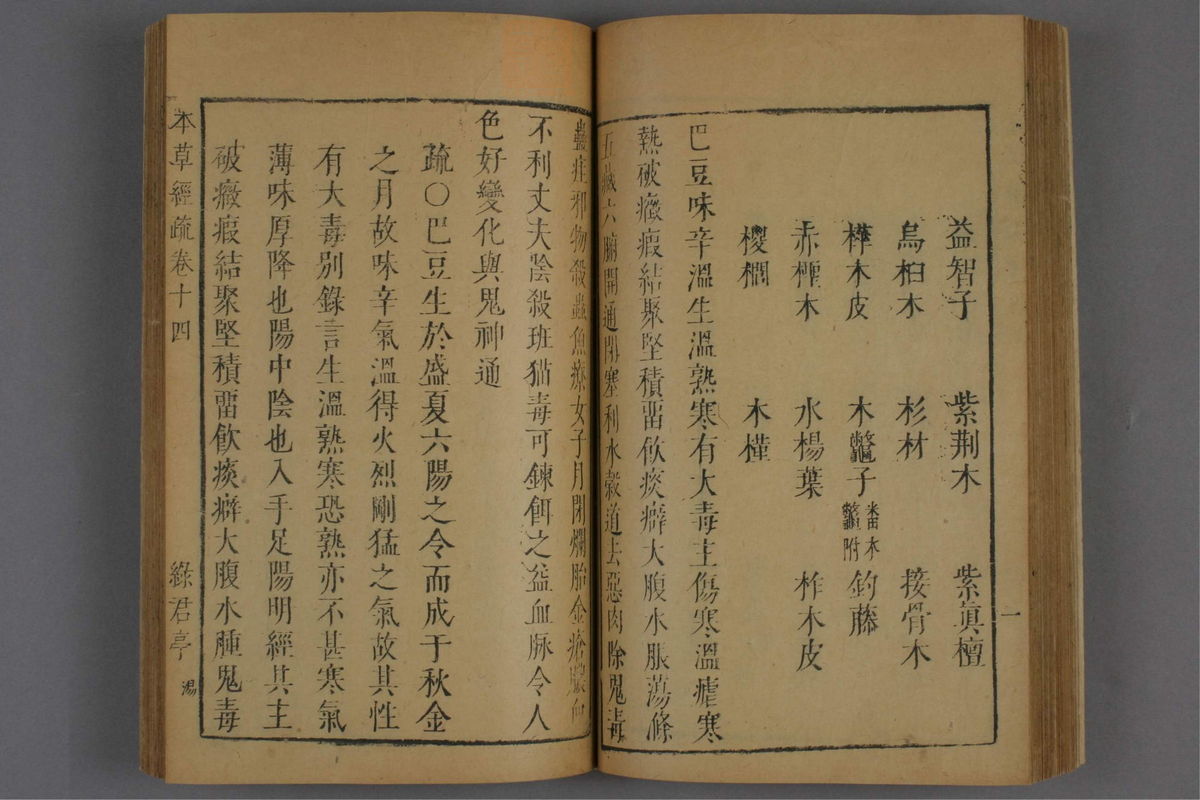 益智子 紫荆木 紫眞檀
烏桕木 杉材 接骨木
樺木皮 木鼈子 番木鼈附 釣藤
赤檉木 水楊葉 柞木皮
椶櫚 木槿
巴豆味辛溫生溫熟寒有大毒主傷寒溫瘧寒
熱破癥瘕結聚堅積畱飮痰癖大腹水脹蕩滌
五臟六腑開通閉塞利水穀道去惡肉除鬼毒
蠱疰邪物殺蟲魚療女子月閉爛胎金瘡膿血
不利丈夫陰殺班猫毒可鍊餌之益血脉令人
色好變化與鬼神通
疏〇巴豆生於盛夏六陽之令而成于秋金
之月故味辛氣溫得火烈剛猛之氣故其性
有大毒別錄言生溫熟寒恐熟亦不甚寒氣
薄味厚降也陽中陰也入手足陽明經其主
破癥瘕結聚堅積畱飮痰癖大腹水腫鬼毒
本草經疏卷十四 綠君亭 湯
一